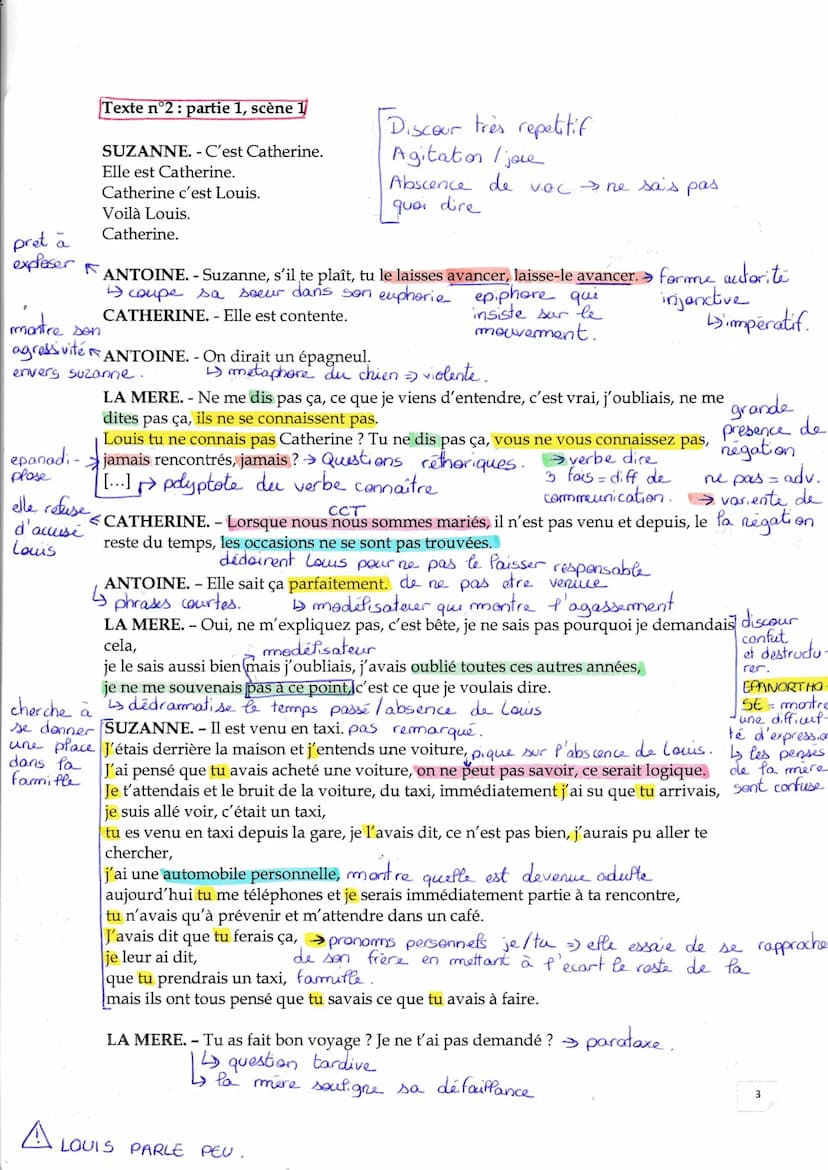 Texte n°2 : partie 1, scène 1
Discour très repetitif
Agitation / joie
Abscence de voc → ne sais pas
quoi dire
SUZANNE. - C'est Catherine.
Elle est Catherine.
Catherine c'est Louis.
Voilà Louis.
Catherine.
pret à
exploser
ANTOINE. - Suzanne, s'il te plaît, tu le laisses avancer, laisse-le avancer. → forme autorité
↳ coupe sa soeur dans son euphorie
epiphore qui
insiste sur le
mouvement.
injonctive
↳ impératif.
CATHERINE. - Elle est contente.
montre son
agressivité
envers suzanne.
ANTOINE. - On dirait un épagneul.
↳ metaphore du chien => violente.
LA MERE. - Ne me dis pas ça, ce que je viens d'entendre, c'est vrai, j'oubliais, ne me
dites pas ça, ils ne se connaissent pas.
Louis tu ne connais pas Catherine ? Tu ne dis pas ça, vous ne vous connaissez pas,
jamais rencontrés, jamais ? → Questions réthoriques.
[...] → polyptote du verbe connaître
epanadi-
plose
→ verbe dire
3 fois = diff de
communication.
grande
presence de
négation
ne pas = adv.
→ variente de
la négation
elle refuse
d'accusé
Louis
CCT
CATHERINE. – Lorsque nous nous sommes mariés, il n'est pas venu et depuis, le
reste du temps, les occasions ne se sont pas trouvées.
dédoirent Louis pour ne pas le laisser responsable
de ne pas etre venue
ANTOINE. – Elle sait ça parfaitement.
↳ phrases courtes.
↳ modélisateur qui montre l'agassement
LA MERE. – Oui, ne m'expliquez pas, c'est bête, je ne sais pas pourquoi je demandais
cela,
modélisateur
je le sais aussi bien mais j'oubliais, j'avais oublié toutes ces autres années,
je ne me souvenais pas à ce point, c'est ce que je voulais dire.
↳ dédramatise le temps passé / absence de Louis
discour
confut
et destructu-
rer.
EPANORTHO-
SE = montre
une difficul-
té d'expression
↳ les pensés
de la mère
sont confuse
cherche à
se donner
une place
dans la
famille
SUZANNE. – Il est venu en taxi. pas remarqué.
J'étais derrière la maison et j'entends une voiture, pique sur l'abscence de Louis.
J'ai pensé que tu avais acheté une voiture, on ne peut pas savoir, ce serait logique.
Je t'attendais et le bruit de la voiture, du taxi, immédiatement j'ai su que tu arrivais,
je suis allé voir, c'était un taxi,
tu es venu en taxi depuis la gare, je l'avais dit, ce n'est pas bien, j'aurais pu aller te
chercher,
j'ai une automobile personnelle, montre quelle est devenue adulte
aujourd'hui tu me téléphones et je serais immédiatement partie à ta rencontre,
tu n'avais qu'à prévenir et m'attendre dans un café.
J'avais dit que tu ferais ça, → pronoms personnels je/tu => elle essaie de se rapproche
je leur ai dit, de son frère en mettant à l'ecart le reste de la
que tu prendrais un taxi, famille.
mais ils ont tous pensé que tu savais ce que tu avais à faire.
LA MERE. – Tu as fait bon voyage ? Je ne t'ai pas demandé ? → parataxe.
↳ question tardive
↳ la mère souligne sa défaillance
3
⚠ LOUIS PARLE PEU.